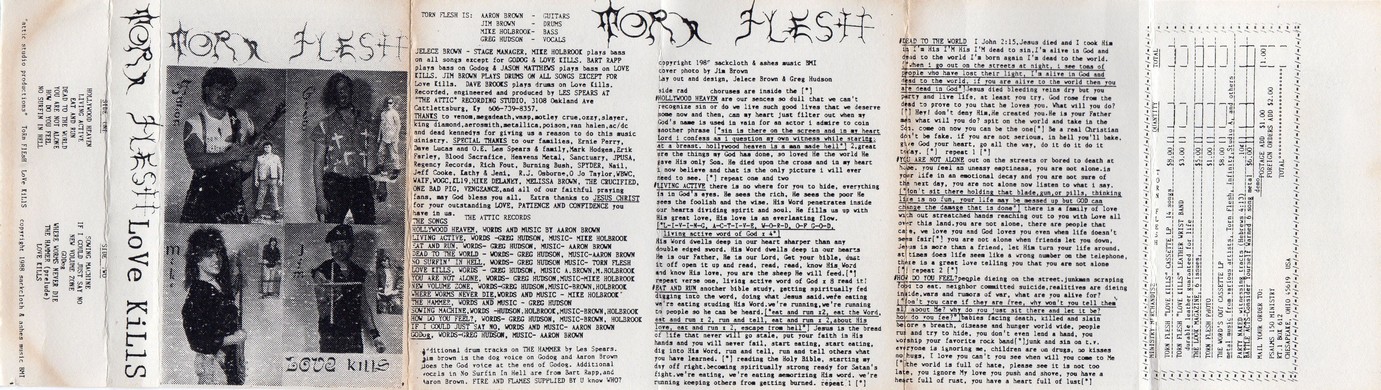 "attic studio productions" Torn FlEsH LovE KillS copyright 1988 sackcloth & ashes music BMI
SIDE ONE
HOLLYWOOD HEAVEN
LIVING ACTIVE
EAT AND RUN
DEAD TO THE WORLD
YOU ARE NOT ALONE
HOW DO YOU FEEL
NO SURFIN IN HELL
SIDE TWO
SOWING MACHINE
IF I COULD JUST SAY NO
NEW VOLUME ZONE
GODog
WHERE WORMS NEVER DIE
THE HAMMER (prelude)
LOVE KILLS
TORN FLESH LoVe KiLlS
TORN FLESH
LOVE KillS
TORN FLESH IS: AARON BROWN - GUITARS
JIM BROWN - DRUMS
MIKE HOLBROOK- BASS
GREG HUDSON - VOCALS
TORN FLESH
JELECE BROWN - STAGE MANAGER, MIKE HOLBROOK plays bass
on all songs except for GODOG & LOVE KILLS. BART RAPP
plays bass on Godog & JASON MATTHEWS plays bass on LOVE
KILLS. JIM BROWN PLAYS DRUMS ON ALL SONGS EXCEPT FOR
Love Kills. DAVE BROOKS plays drums on Love Kills.
Recorded, engineered and produced by LES SPEARS AT
"THE ATTIC" RECORDING STUDIO, 3108 Oakland Ave
Cattlettsburg, Ky 606-739-8357.
THANKS to venom,megedeath,wasp,motley crue,ozzy,slayer,
king diamond,aerosmith,metallica,poison,van halen,ac/dc
and dead kennedys for giving us a reason to do this music
ministry. SPECIAL THANKS to our families, Ernie Parry,
Dave Lucas and O.E. Les Spears & family,Mark Hodges,Erik
Parley, Blood Sacrifice, Heavens Metal, Sanctuary, JPUSA,
Regency Records, Rich Fout, Burning Bush, SPYDER, Nail,
Jeff Cooke, Kathy & Jeni, R.J. Osborne,O Jo Taylor,WBWC,
WAIF,WOGC,EL19,MIKE DELANEY, MELISSA BROWN, THE CRUCIFIED,
ONE BAD PIG, VENGEANCE,and all of our faithful praying
fans, may God bless you all. Extra thanks to JESUS CHRIST
for your outstanding LOVE, PATIENCE AND CONFIDENCE you
have in us. THE ATTIC RECORDS
THE SONGS
HOLLYWOOD HEAVEN, WORDS AND MUSIC BY AARON BROWN
LIVING ACTIVE, WORDS -GREG HUDSON, MUSIC- MIKE HOLBROOK
EAT AND RUN, WORDS- GREG HUDSON, MUSIC- AARON BROWN
DEAD TO THE WORLD - WORDS GREG HUDSON, MUSIC-AARON BROWN
NO SURFIN' IN HELL, WORDS-GREG HUDSON, MUSIC- TORN FLESH
LOVE KILLS, WORDS- GREG HUDSON, MUSIC A.BROWN,M.HOLBROOK
YOU ARE NOT ALONE, WORDS- GREG HUDSON,MUSIC-MIKE HOLBROOK
NEW VOLUME ZONE, WORDS-GREG HUDSON, MUSIC-BROWN,HOLBROOK
WHERE WORMS NEVER DIE,WORDS AND MUSIC - MIKE HOLBROOK
THE HAMMER, WORDS AND MUSIC - GREG HUDSON
SOWING MACHINE,WORDS -HUDSON,HOLBROOK,MUSIC-BROWN,HOLBROOK
HOW DO YOU FEEL?, WORDS- GREG HUDSON, MUSIC- AARON BROWN
IF I COULD JUST SAY NO, WORDS AND MUSIC- AARON BROWN
GODog, WORDS-GREG HUDSON, MUSIC- AARON BROWN
additional drum tracks on THE HAMMER by Les Spears.
Jim brown is the dog voice on Godog and Aaron Brown
does the God voice at the end of Godog. Additional
voices in No Surfin In Hell are from Bart Rapp,and
Aaron Brown. FIRE AND FLAMES SUPPLIED BY U know WHO?
copyright 1987 sackcloth & ashes music BMI
cover photo by Jim Brown
lay out and design, Jelece Brown & Greg Hudson
choruses are inside the [*]
HOLLYWOOD HEAVEN are our senses so dull that we can't
recognise sin or do we live such good lives that we deserve
some now and then, can my heart just filter out when my
God's name is used in vain for an actor i admire to coin
another phrase [*sin is there on the screen and in my heart
Lord i confess as i question my own witness while staring
at a breast. hollywood heaven is a man made hell*] 2,great
are the things my God has done, so loved He the world He
gave His only Son. He died upon the cross and in my heart
i now believe and that is the only picture i will ever
need to see. [*] repeat one and two
LIVING ACTIVE there is no where for you to hide, everything
is in God's eye. He sees the rich, He sees the poor He
sees the foolish and the wise. His Word penetrates inside
our hearts dividing spirit and soul. He fills us up with
His great love, His love is an everlasting flow.
[*L-I-V-I-N-G, A-C-T-I-V-E, W-O-R-D, O-F G-O-D,
living active word of God x 4*]
His Word dwells deep in our heart sharper than any
double edged sword. His Word dwells deep in our hearts
He is our Father, He is our Lord, Get your bible, dust
it off then open it up and read, read, read, know His Word
and know His love, you are the sheep He will feed.[*]
repeat verse one, living active word of God x 8 read it!
EAT AND RUN another bible study, getting spiritually fed
digging into the word, doing what Jesus said.we're eating
we're eating studing His Word.we're running,we're running
to people so he can be heard.[*eat and run x2, eat the Word,
eat and run x 2, run and tell, eat and run x 2, about His
love, eat and run x 2, escape from hell*] Jesus is the bread
of life that never will go stale, put your faith in His
hands and you will never fail, start eating, start eating,
dig into His Word, run and tell, run and tell others what
you have learned. [*] reading the Holy Bible, starting my
day off right.becoming spiritually strong ready for Satan's
fight.we're eating, we're eating memorizing His word. we're
running keeping others from getting burned. repeat 1 [*]
DEAD TO THE WORLD I John 2:15,Jesus died and I took Him
in I'm His I'M His I'M dead to sin,I'm alive in God and
dead to the world I'm born again I'm dead to the world.
[*when i go out on the streets at night, i see tons of
people who have lost their light, I'm alive in God and
dead to the world. if you are alive to the world then you
are dead in God*]Jesus died bleeding veins dry but you
party and live life, at least you try. God rose from the
dead to prove to you that he loves you. What will you do?
[*] Hey! don't deny Him,He created you.He is your Father
man what will you do? spit on the world and take in the
Son, come on now you can be the one[*] Be a real Christian
don't be fake, if you are not serious, in hell you'll bake.
give God your heart, go all the way, do it do it do it
today. [*] repeat 1[*]
YOU ARE NOT ALONE out on the streets or bored to death at
home, you feel an uneasy emptiness, you are not alone.is
your life in an emotional decay and you are not sure of
the next day, you are not alone now listen to what i say.
[*don't sit there holding that blade,gun,or pills, thinking
life is no fun, your life may be messed up but GOD can
change the damage that is done*] there is a family of love
with out stretched hands reaching out to you with Love all
over this land.you are not alone, there are people that
care, we love you and God loves you even when life doesn't
seem fair[*] you are not alone when friends let you down,
Jesus is more than a friend, let Him turn your life around,
at times does life seem like a wrong number on the telephone,
there is a great love telling you that you are not alone
[*] repeat 2 [*]
HOW DO YOU FEEL?people dieing on the street,junkmans scraping
food to eat. neighbor committed suicide.realitives are dieing
inside,wars and rumors of war, what are you alive for?
[*don't you care if they are free, why won't you tell them
all about Me? why do you just sit there and let it be?
how do you feel?*]babies facing death, killed and slain
before a breath, disease and hunger world wide, people
and try to hide, you don't even lend a hand, you
worship your favorite rock band[*]junk and sin on t.v.
everyone is ignoring me, children are on drugs, no kisses
no hugs, I love you can't you see when will you come to Me
[*]the world is full of hate, please see it is not too
late, you ignore My love you push and shove, you have a
heart full of rust, you have a heart full of lust[*]
QUANTITY TOTAL
TORN FLESH "LOVE KILLS" CASSETTE LP 14 songs $8.00
TORN FLESH "LOVE KILLS" LEATHER WRIST BAND $3.00
durable leather guaranteed for life
THE LOOK MAGAZINE, 6 issues $5.00
TORN FLESH PHOTO $1.00
THE WORD'S OUT CASSETTE LP $8.00
metal music from various artists, Torn Flesh, Infinity,Studio 4, and others
PARTY NAKED witnessing tracts [Hebrews 4:13]
MAIL YOUR ORDER TO:
PSALMS 150 MINISTRY
CHESAPEAKE, OHIO 45619 USA
POSTAGE ADD $1.00
FOREIGN ORDERS ADD $2.00
TOTAL